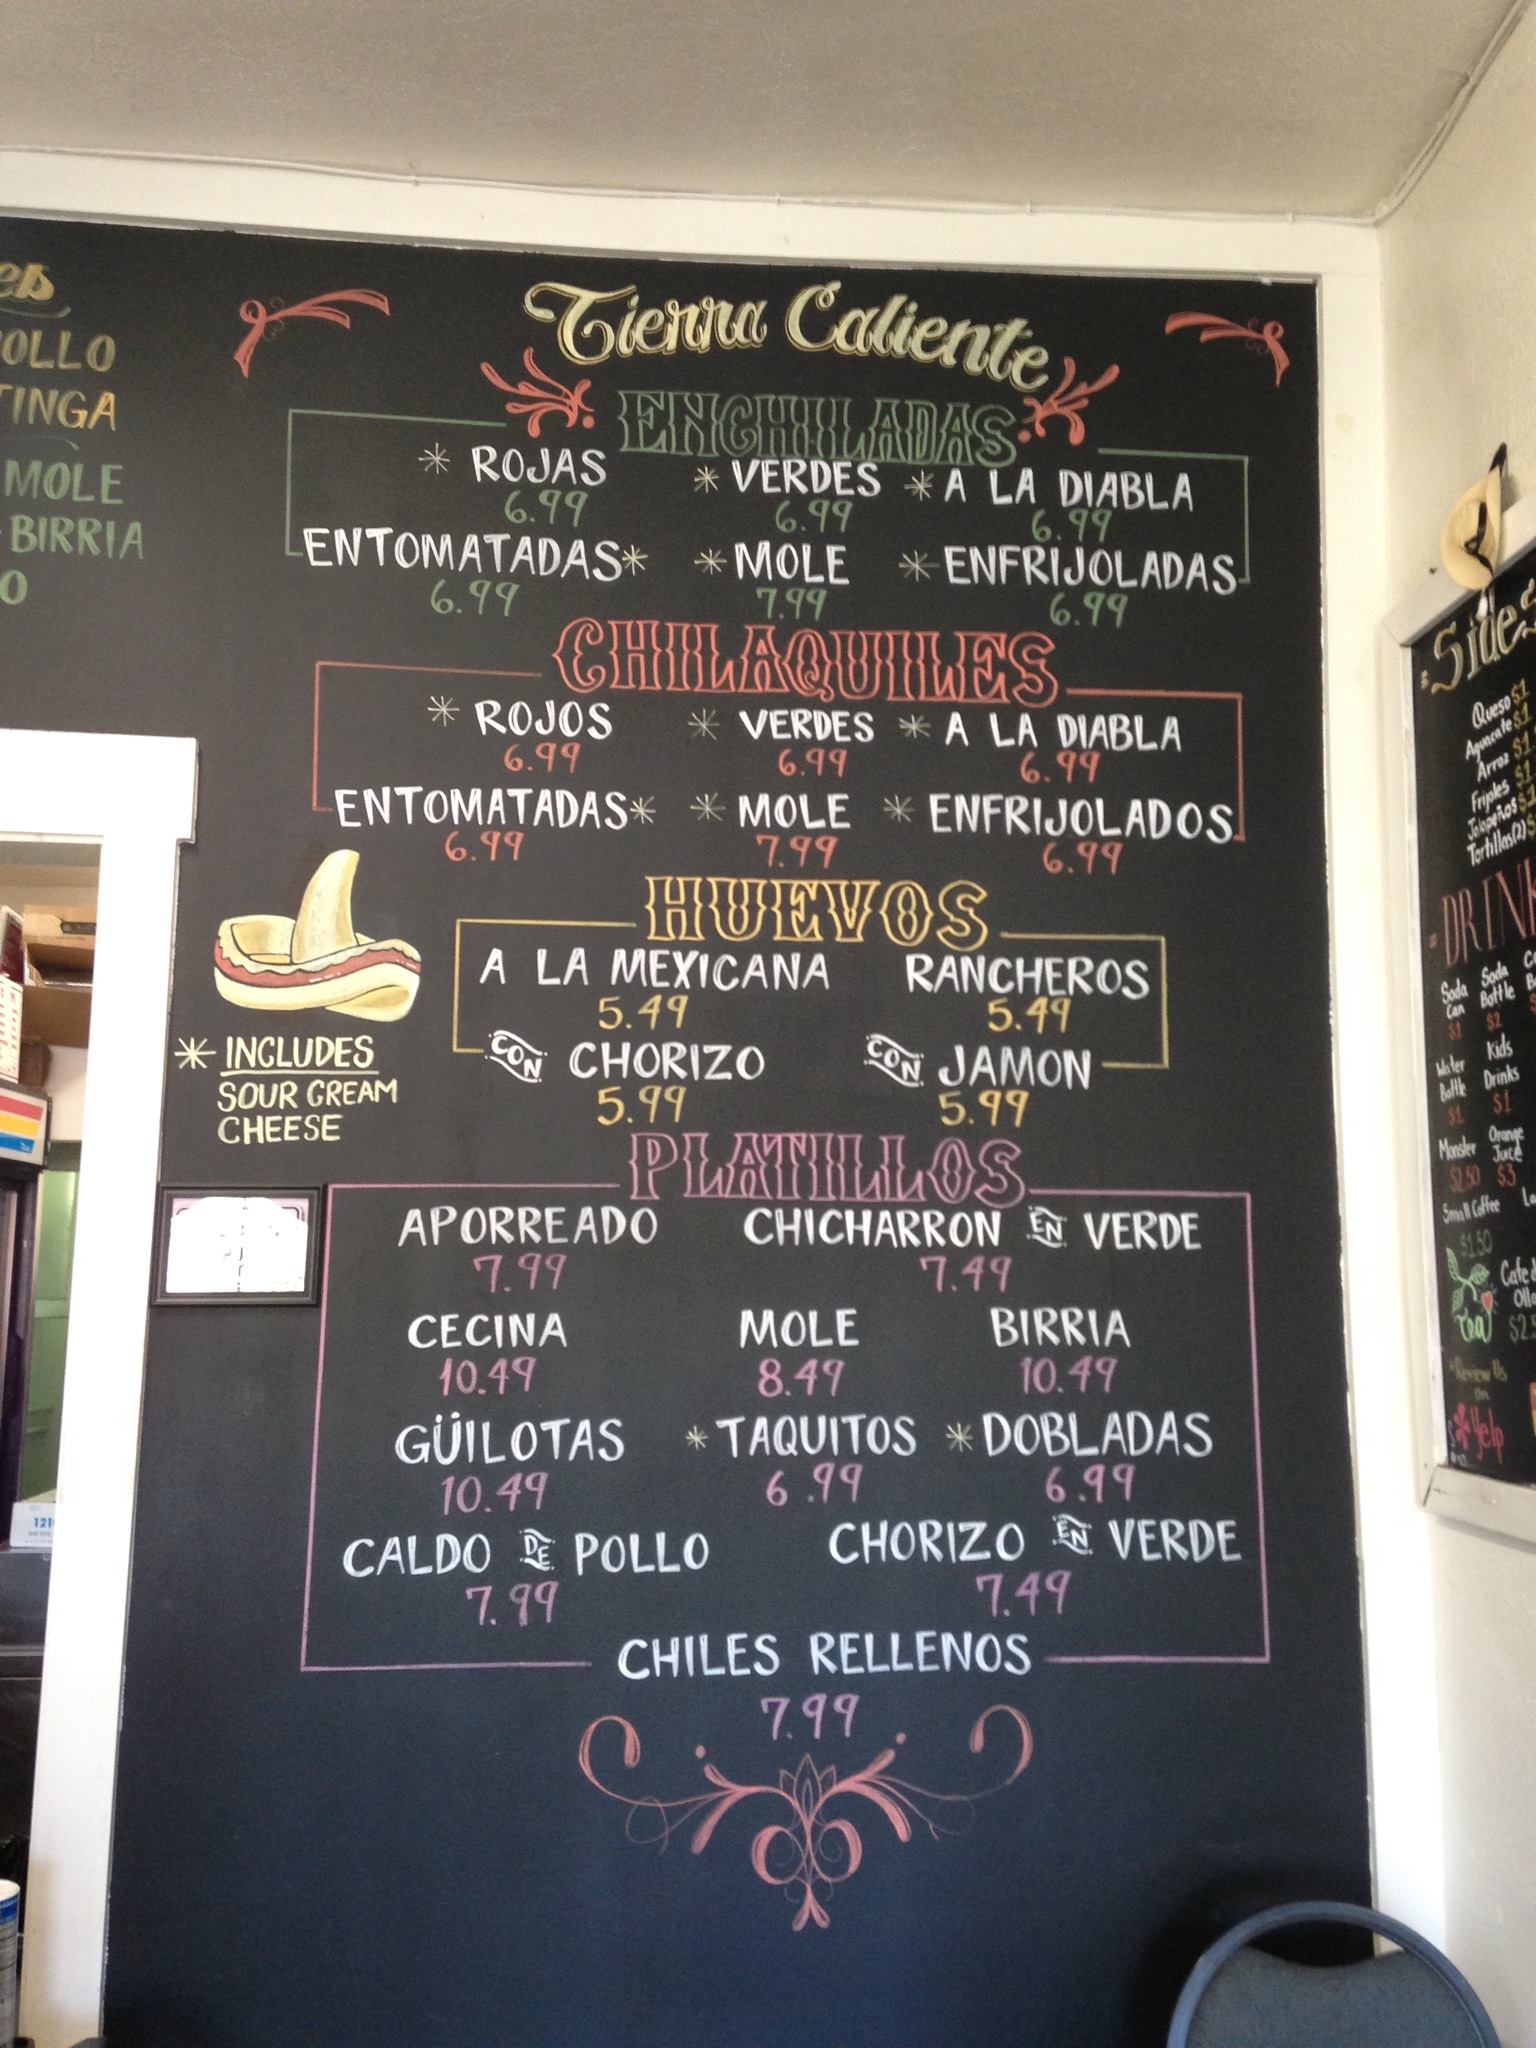 TINGA
MOLE
BIRRIA
Tierra Caliente
ENCHILADAS
* ROJAS * VERDES * A LA DIABLA
6.99 6.99 6.99
ENTOMATADAS* * MOLE * ENFRIJOLADAS
6.99 7.99 6.99
CHILAQUILES
* ROJOS * VERDES * A LA DIABLA
6.99 6.99 6.99
ENTOMATADAS* * MOLE * ENFRIJOLADOS
6.99 7.99 6.99
HUEVOS
A LA MEXICANA RANCHEROS
5.49 5.49
CON CHORIZO CON JAMON
5.99 5.99
* INCLUDES
SOUR CREAM
CHEESE
PLATILLOS
APORREADO CHICHARRON EN VERDE
7.99 7.49
CECINA MOLE BIRRIA
10.49 8.49 10.49
GÜILOTAS * TAQUITOS * DOBLADAS
10.49 6.99 6.99
CALDO DE POLLO CHORIZO EN VERDE
7.99 7.49
CHILES RELLENOS
7.99
Queso $1
Aguacate $1
Arroz
Frijoles $1
Jalapeños
Tortillas(2)
Soda Can Soda Bottle
$1 $2
Water Bottle Kids Drinks
$1 $1
Monster Orange Juice
$2.50 $3
Small Coffee
$1.50
Tea
Review Us
on
Yelp